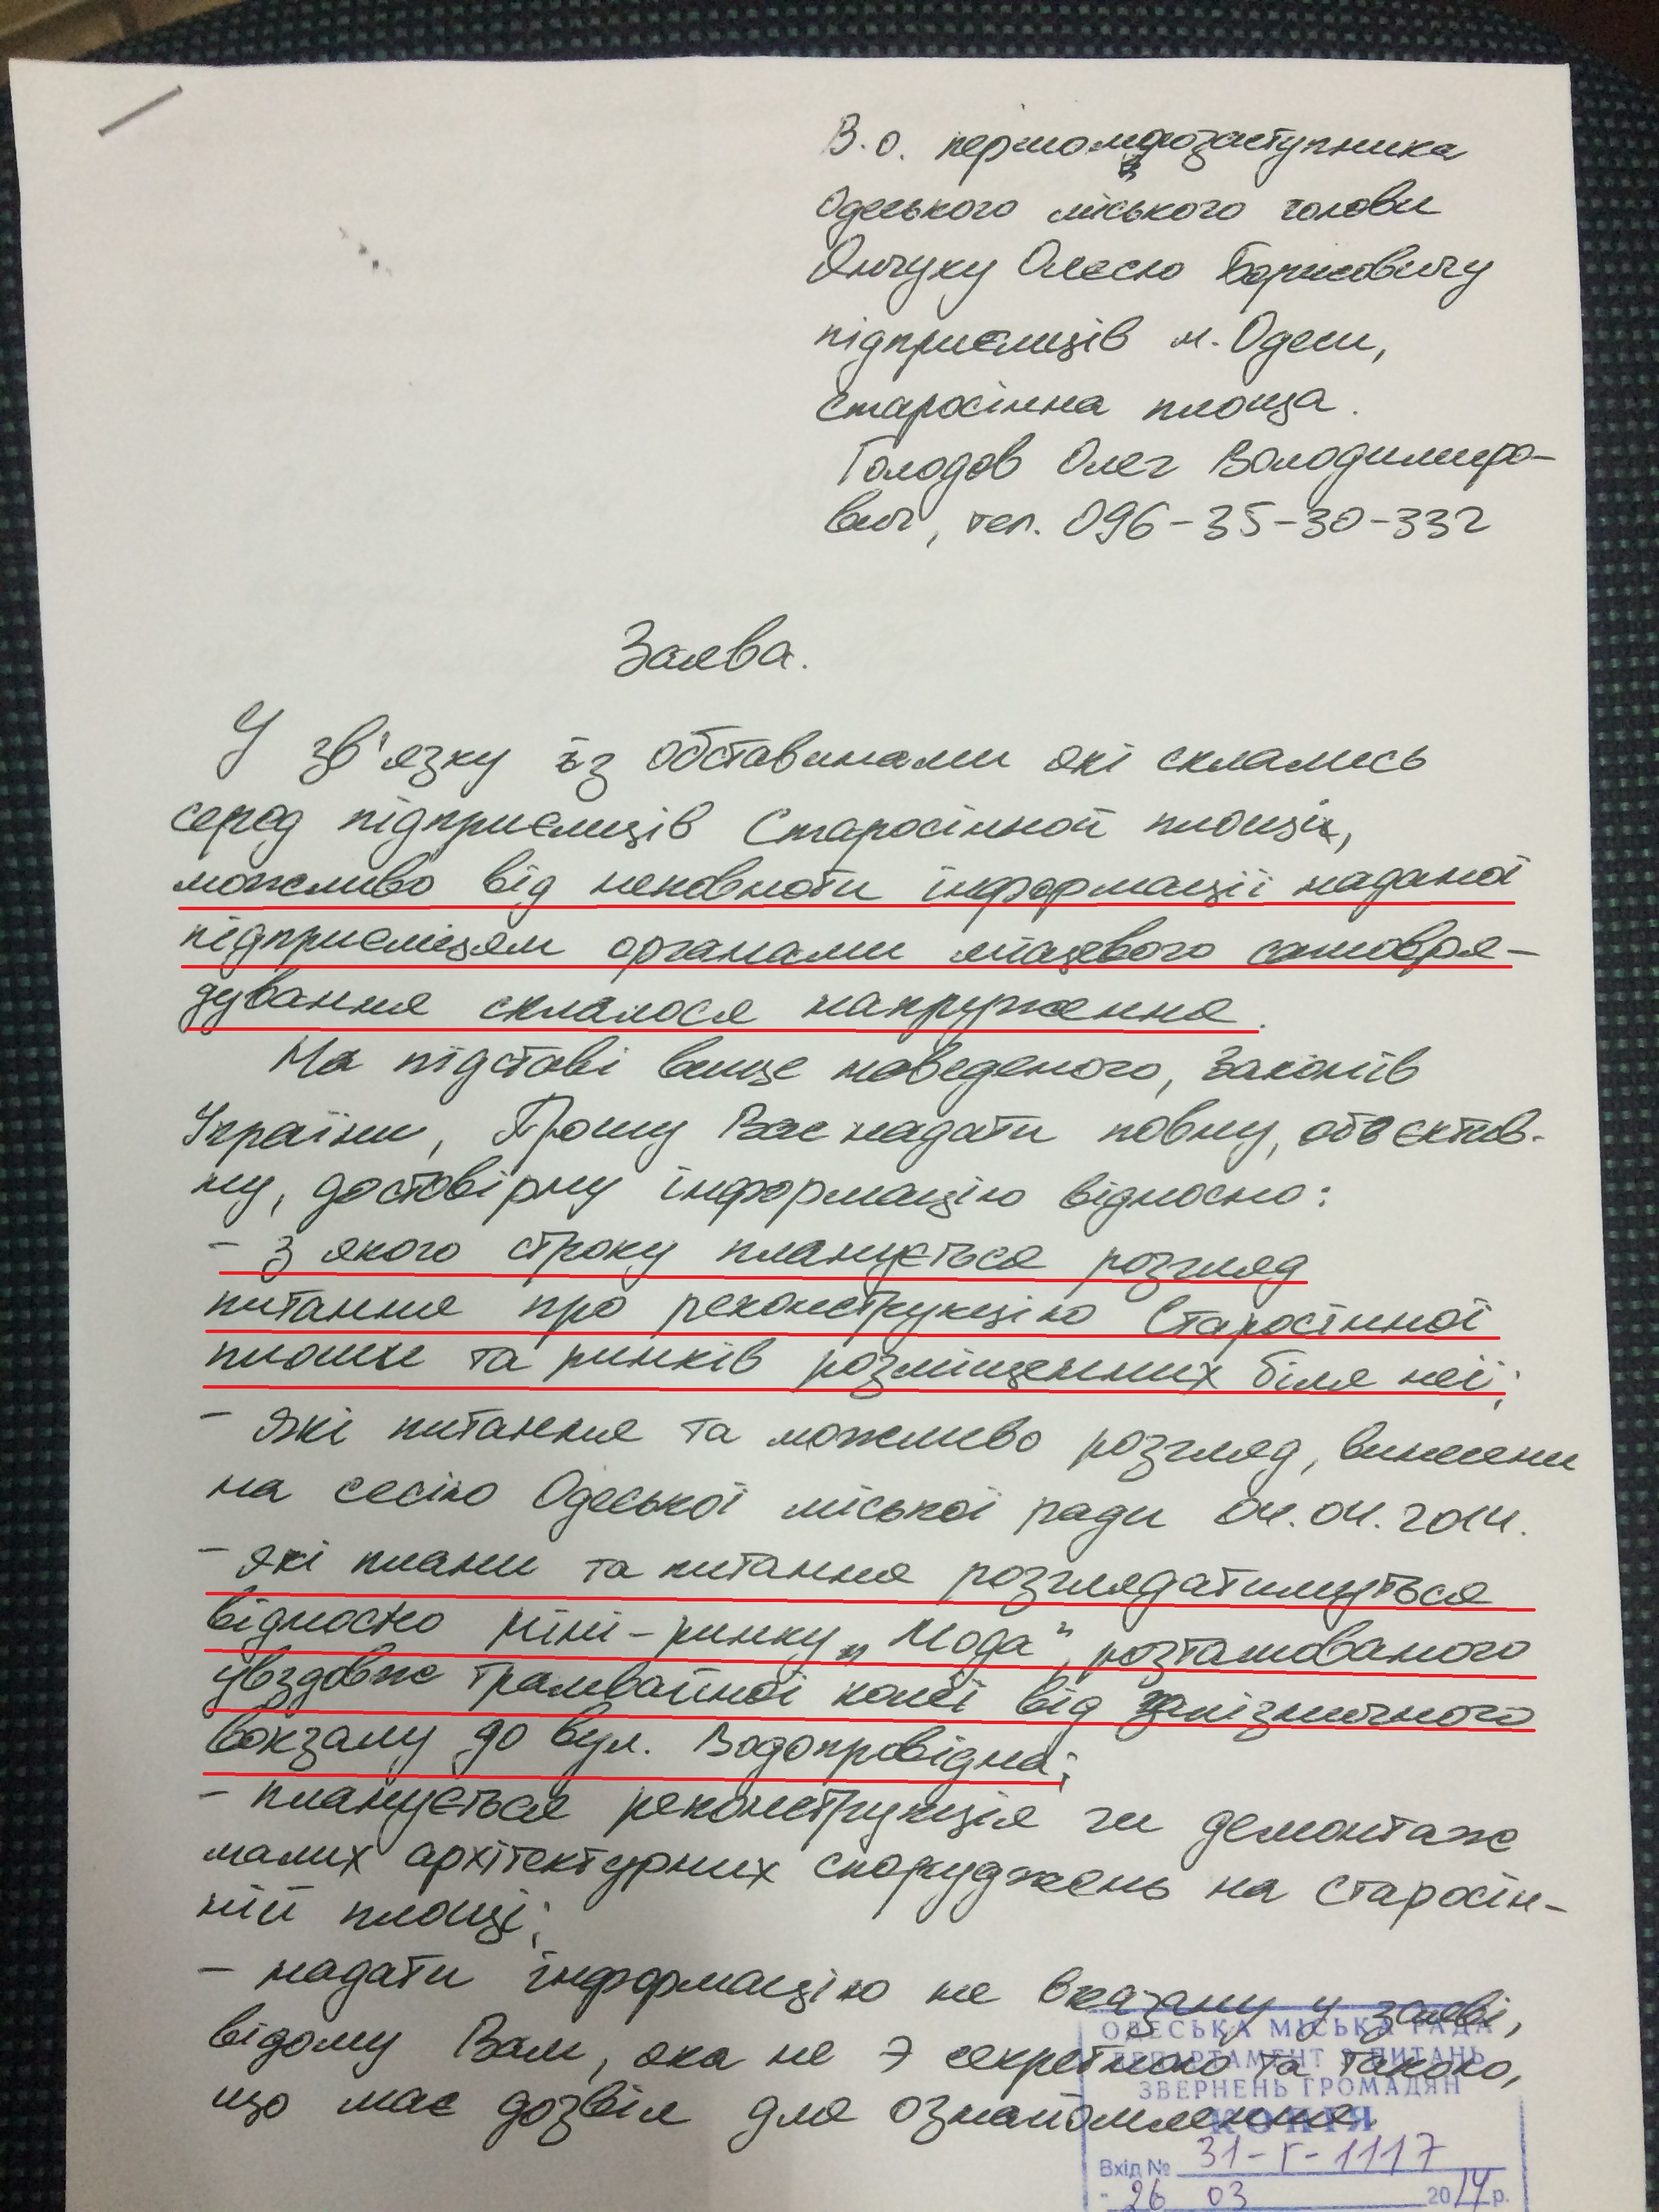 В.о. першого заступника
Одеського міського голови
Янчуку Олесю Борисовичу
підприємців м. Одеси,
Старосінна площа.
Голодов Олег Володимиро-
вич, тел. 096-35-30-332
Заява.
У зв'язку із обставинами які склались
серед підприємців Старосінной площі,
можливо від неповноти інформації наданої
підприємцям органами місцевого самовря-
дування склалося напруження.
На підставі вище наведеного, Законів
України, Прошу Вас надати повну, об'єктив-
ну, достовірну інформацію відносно:
- з якого строку планується розгляд
питання про реконструкцію Старосінної
площи та ринків розміщенних біля неї;
- які питання та можливо розгляд, винесени
на сесію Одеської міської ради 04.04.2014.
- які плани та питання розглядатимуться
відностно міні-ринку „Мода", розташованого
увздовж трамвайної колії від залізничного
вокзалу до вул. Водопровідна;
- планується реконструкція чи демонтаж
малих архітектурних споруджень на Старосін-
ній площі;
- надати інформацію не вказану у заяві,
відому Вам, яка не э секретною та такою,
що має дозвіл для ознайомлення.
ОДЕСЬКА МІСЬКА РАДА
ДЕПАРТАМЕНТ З ПИТАНЬ
ЗВЕРНЕНЬ ГРОМАДЯН
КОПІЯ
Вхід № 31-Г-1117
" 26 03 2014 р.